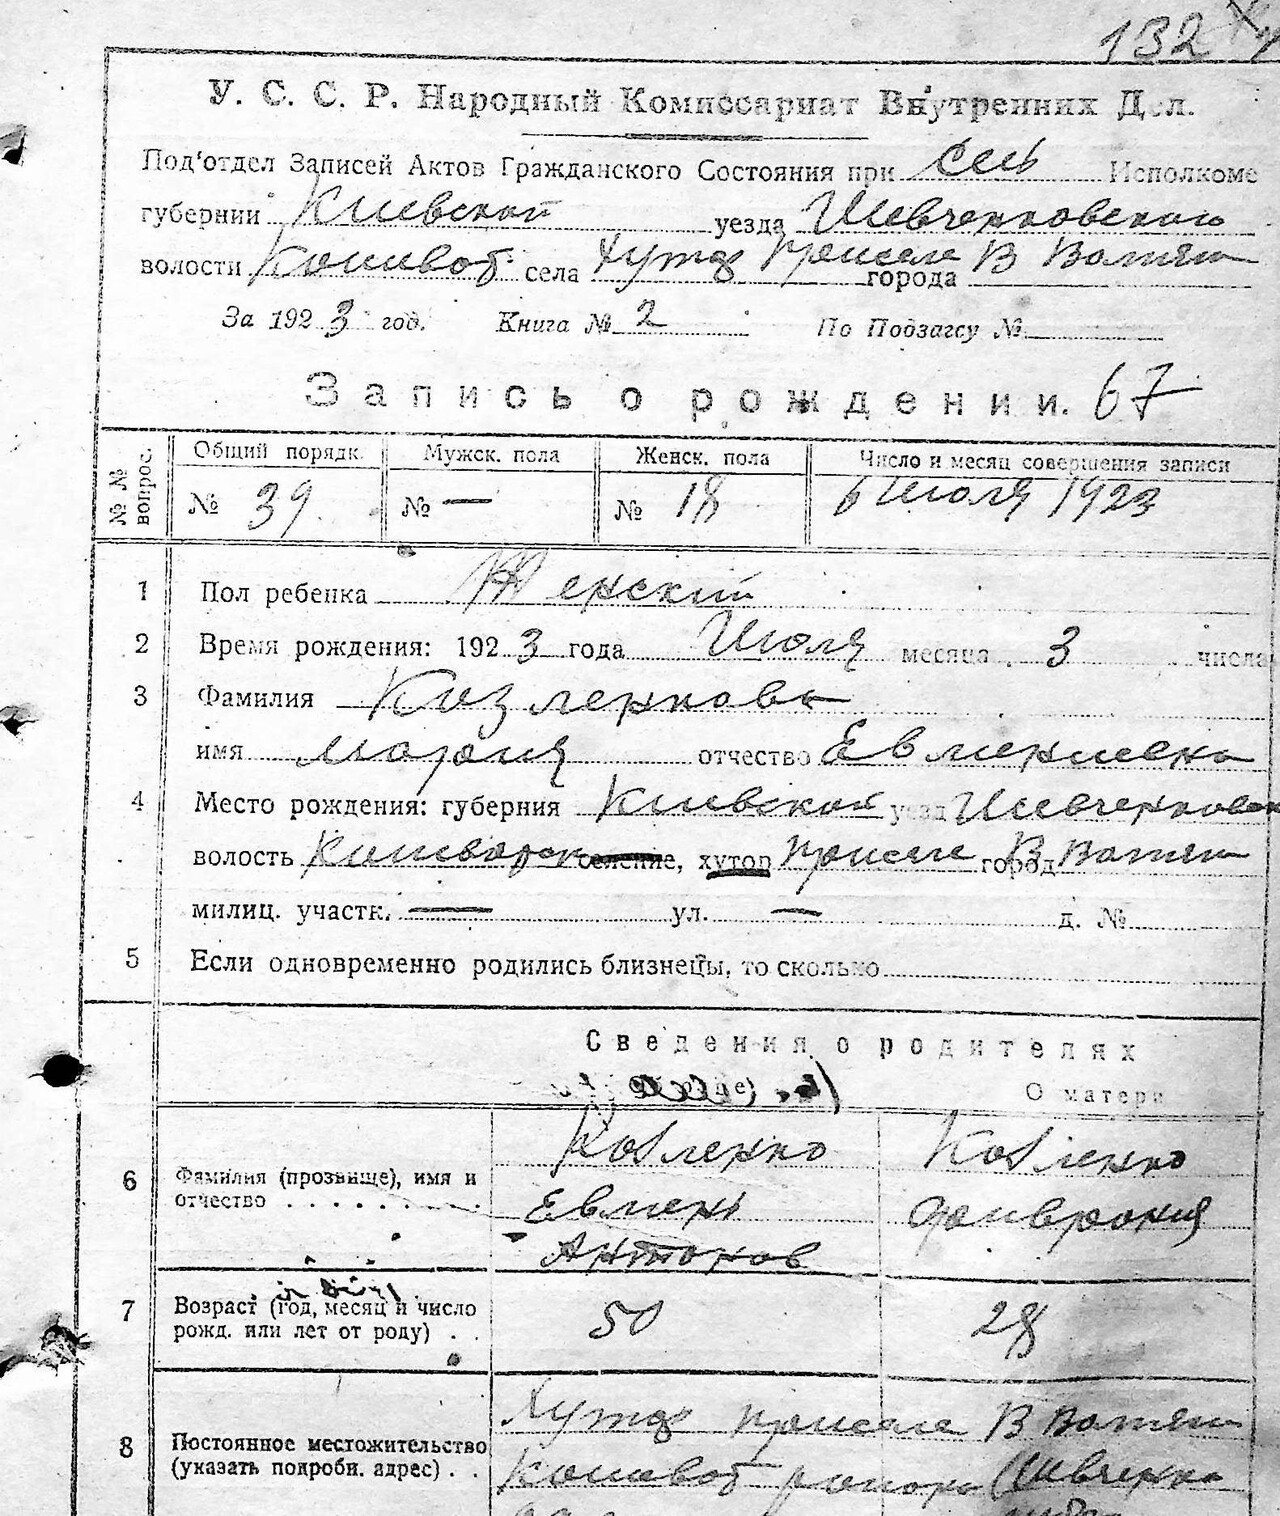 132
У. С. С. Р. Народный Комиссариат Внутренних Дел.
Под'отдел Записей Актов Гражданского Состояния при сель Исполкоме
губернии Киевской уезда Шевченковского
волости села Хутор присел города В
За 1923 год. Книга № 2 По Подзагсу №
Запись о рождении. 67
№№ вопрос. Общий порядк. Мужск. пола Женск. пола Число и месяц совершения записи
№ 39 № — № 18 6 Июля 1923
1 Пол ребенка Женский
2 Время рождения: 1923 года Июля месяца 3 числа
3 Фамилия
имя Мария отчество
4 Место рождения: губерния Киевской уезд Шевченковск
волость селение, хутор город В
милиц. участк. — ул. — д. №
5 Если одновременно родились близнецы, то сколько
Сведения о родителях
О матери
6 Фамилия (прозвище), имя и Козленко Козленко
отчество Евмен
Антонов
7 Возраст (год, месяц и число 50 28
рожд. или лет от роду)
Хутор В
8 Постоянное местожительство
(указать подробн. адрес) района Шевченко